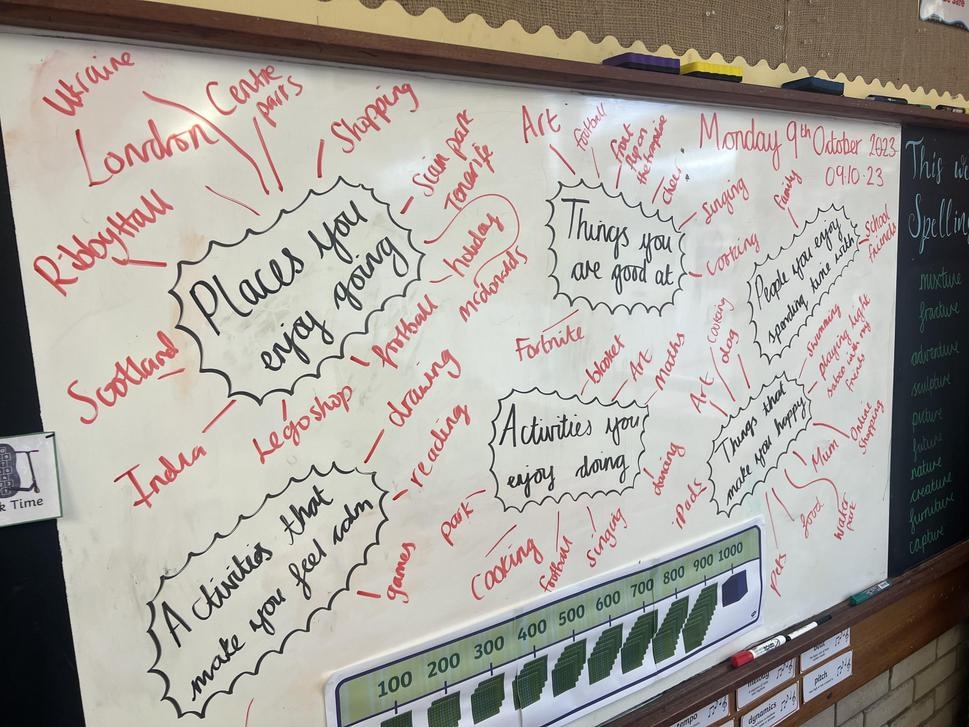 Ukraine
London
Centre
parcs
Shopping
Siam park
Tenerife
holiday
mcdonalds
football
Legoshop
India
Scotland
RibbyHall
Places you
enjoy going
Art
football
front
flip on
the trampoline
cheer
singing
cooking
Fortnite
Things you
are good at
Monday 9th October 2023
09.10.23
family
school
friends
People you enjoy
spending time with?
swimming
playing light
sabers with my
friends
Online
shopping
Mum
water
park
food
pets
iPads
Art
dog
cooking
Things that
make you happy
blooket
Art
maths
dancing
singing
football
Cooking
park
Activities you
enjoy doing
drawing
reading
games
Activities that
make you feel calm
100 200 300 400 500 600 700 800 900 1000
This we
Spellin
mixture
fracture
adventure
sculpture
picture
future
nature
creature
furniture
capture
k Time
tempo
dynamics
pitch